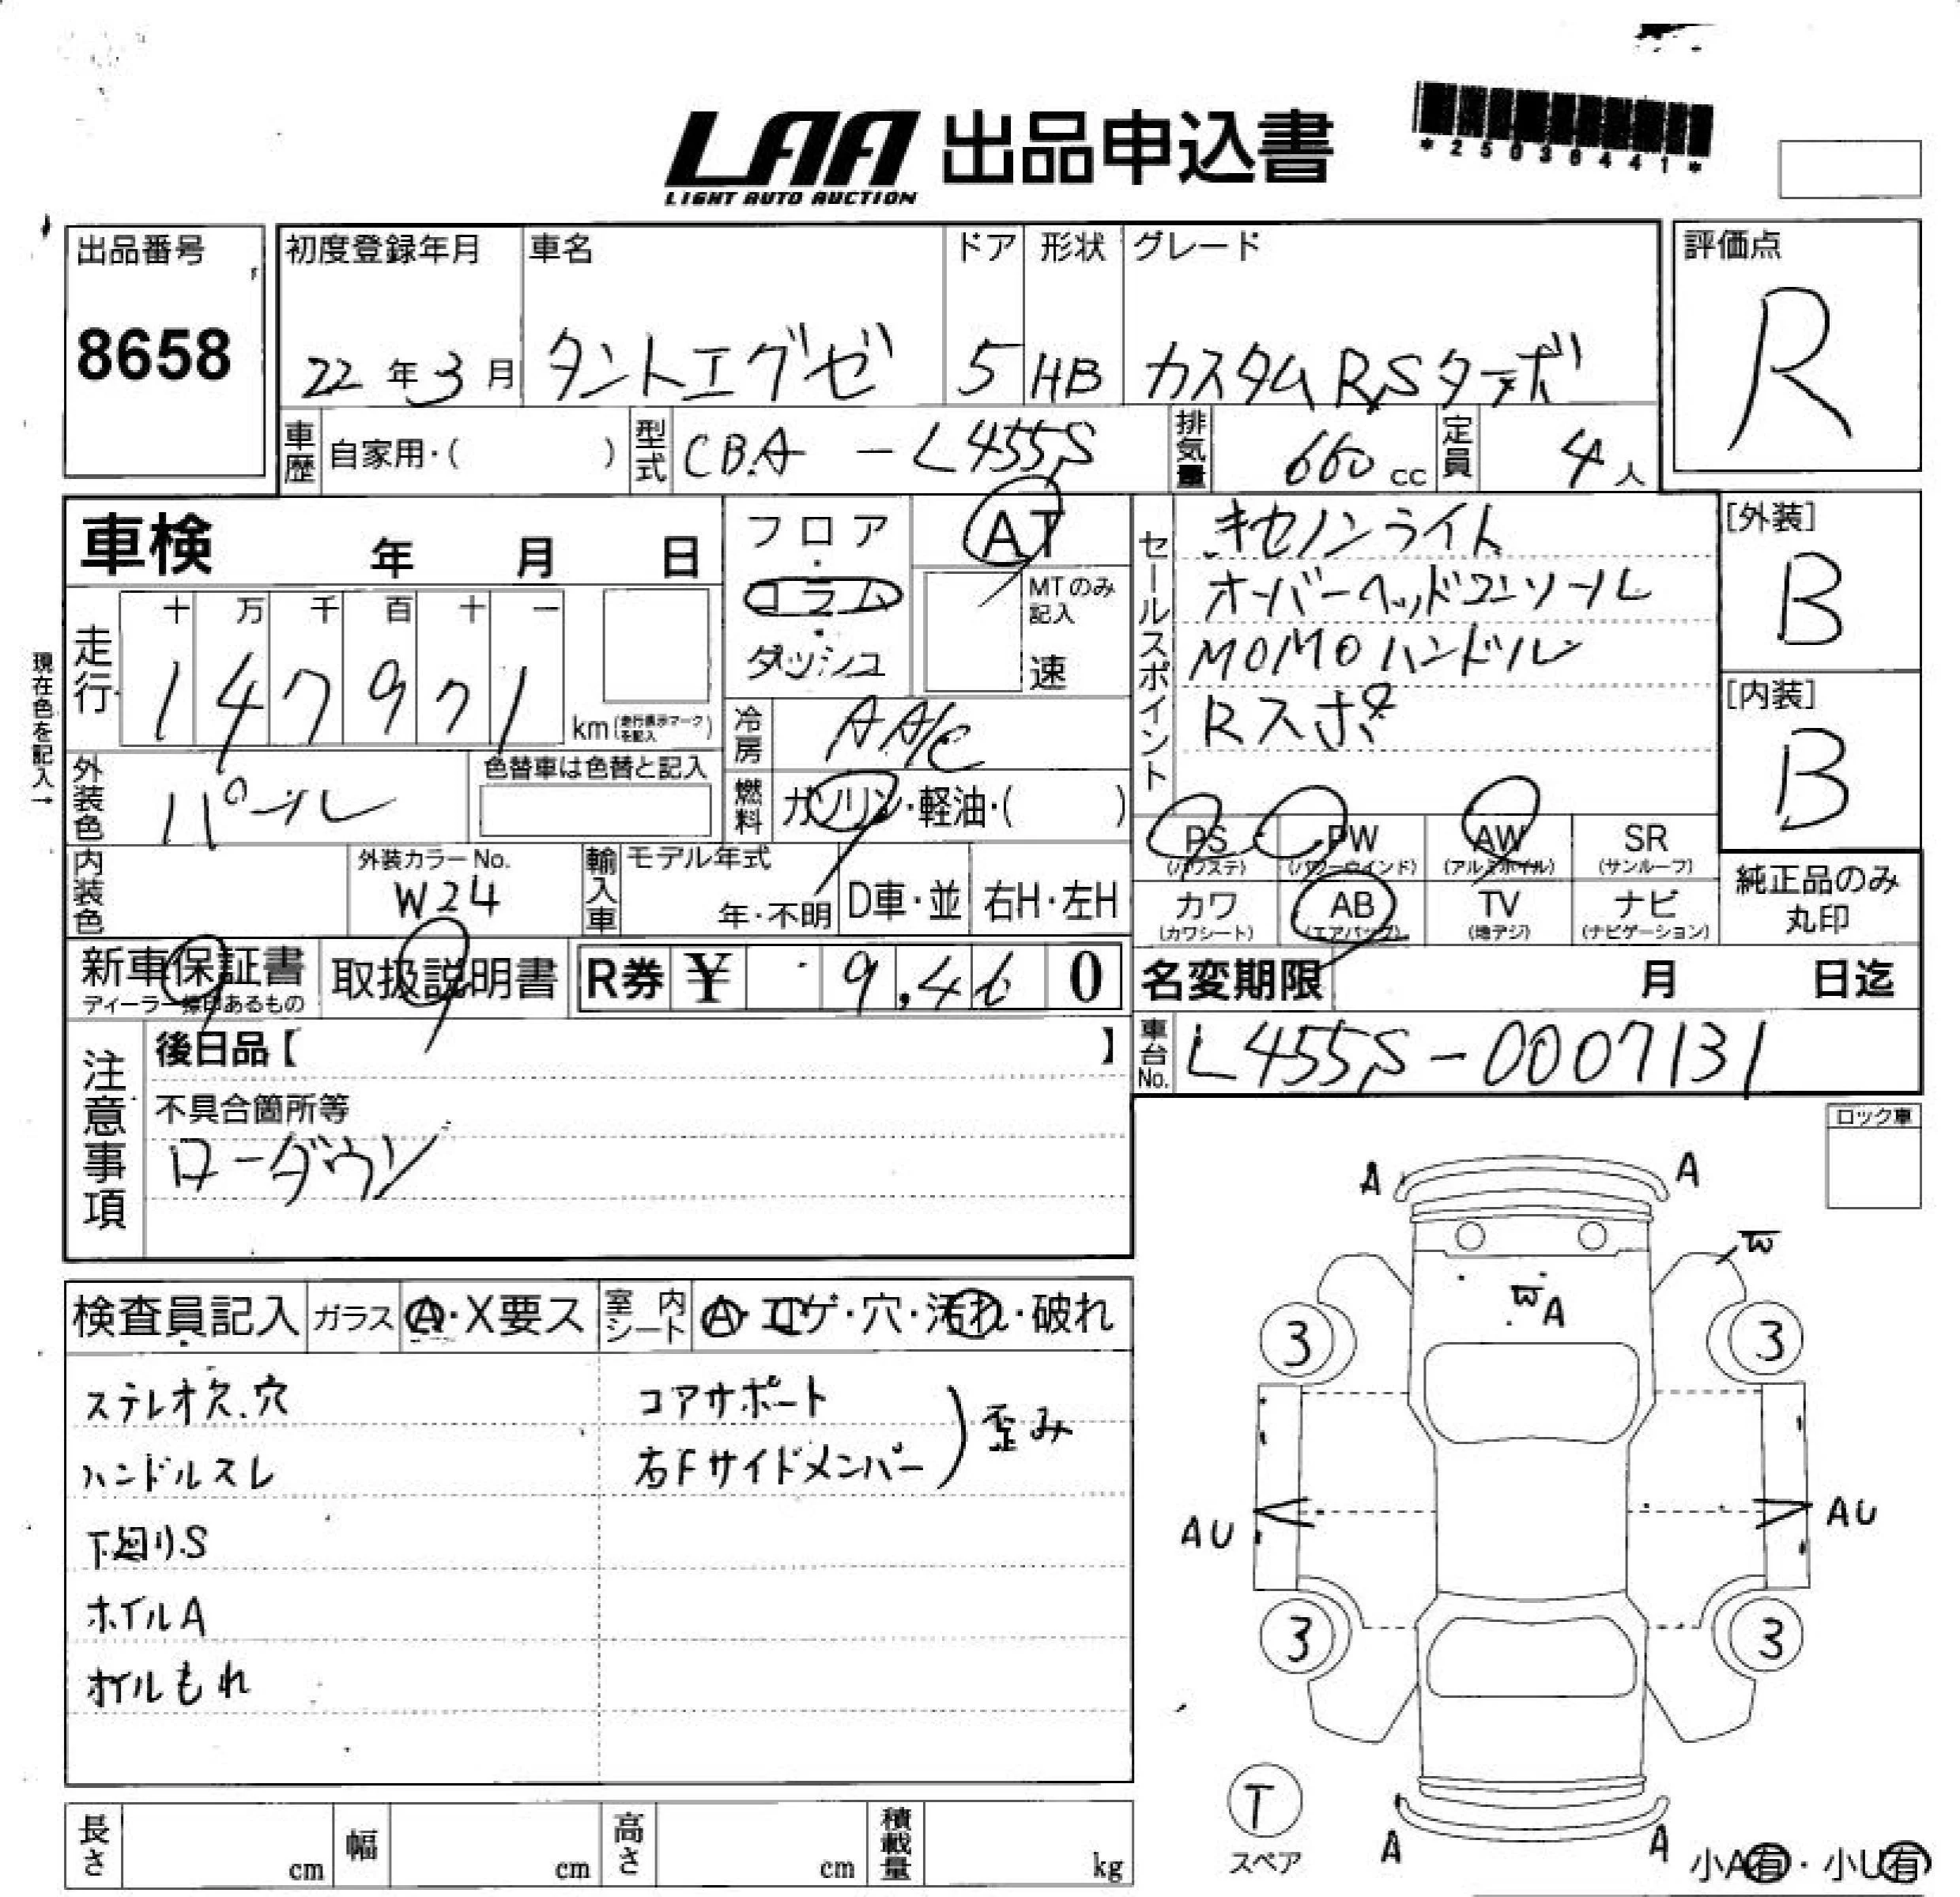 LAA 出品申込書
LIGHT AUTO AUCTION
*25036441*
出品番号
8658
初度登録年月
22年3月
車名
タントエグゼ
ドア
5
形状
HB
グレード
カスタムRSターボ
評価点
R
車歴
自家用・( )
型式
CBA-L455S
排気量
660cc
定員
4人
車検 年 月 日
フロア
・
コラム
・
ダッシュ
AT
MTのみ記入
速
セールスポイント
キセノンライト
オーバーヘッドコンソール
MOMOハンドル
Rスポ
[外装]
B
[内装]
B
現在色を記入→
走行
十 万 千 百 十 一
147971
km(走行表示マークを記入)
冷房
AA/C
外装色
パール
色替車は色替と記入
燃料
ガソリン・軽油・( )
PS (パワステ)
PW (パワーウインド)
AW (アルミホイル)
SR (サンルーフ)
カワ (カワシート)
AB (エアバッグ)
TV (地デジ)
ナビ (ナビゲーション)
純正品のみ
丸印
内装色
外装カラーNo.
W24
輸入車
モデル年式
年・不明
D車・並
右H・左H
新車保証書
ディーラー捺印あるもの
取扱説明書
R券 ¥ 9,460
名変期限 月 日迄
車台No.
L455S-0007131
注意事項
後日品【 】
不具合箇所等
ローダウン
ロック車
検査員記入
ガラス
A・X要ス
室内シート
A・コゲ・穴・汚れ・破れ
ステレオ欠.穴
ハンドルスレ
下廻り.S
ホイルA
オイルもれ
コアサポート
右Fサイドメンバー
歪み
A A
W
W A
3 3
AU AU
3 3
T
スペア
A A
小A有・小U有
長さ cm
幅 cm
高さ cm
積載量 kg